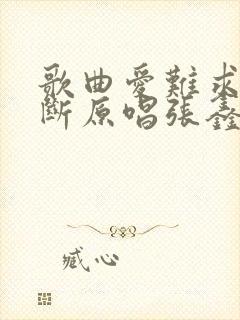 歌曲愛難求
斷原唱張鑫
臧心